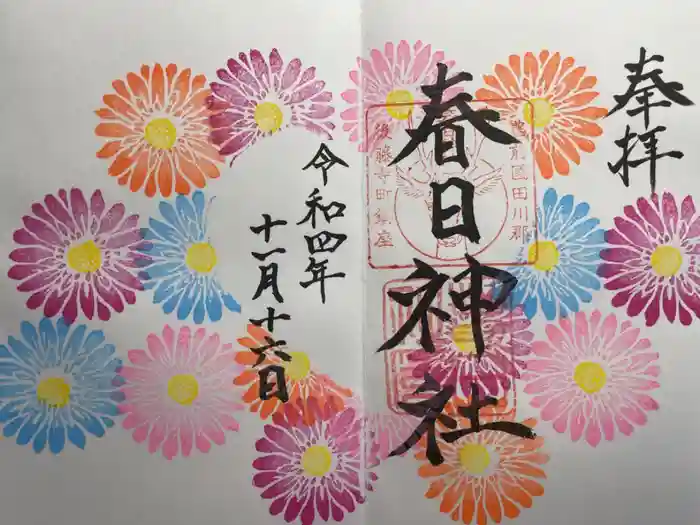 奉拝
春日神社
豊前國田川郡
後藤寺町鎮座
令和四年
十一月十六日